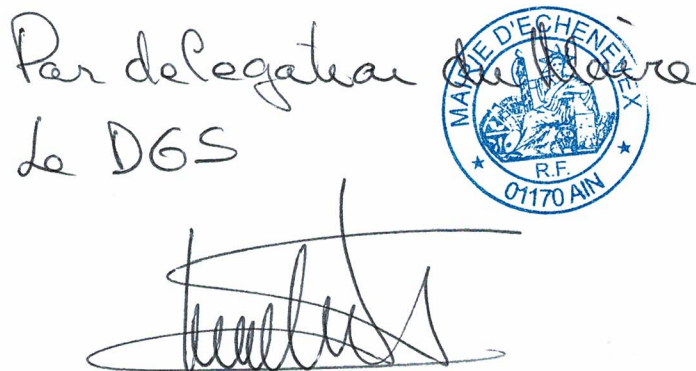 Par delegation du Maire
Le DGS
MAIRIE D'ECHENEVEX
R.F.
01170 AIN